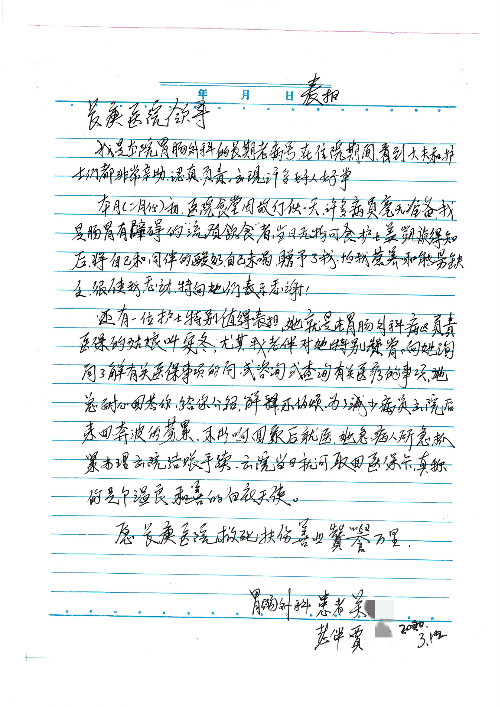 年 月 日
表扬
长庚医院领导
我是你院胃肠外科的长期老病号，在住院期间，看到大夫和护
士们都非常亲助，认真，负责，出现许多好人好事
本月（二月份）初，医院食堂因故停伙一天，许多病员毫无准备，我
是肠胃有障碍的流质饮食者，当日无物可食，护士姜 获得知
后，将自己和同伴的酸奶自己不喝，赠予了我，
很使我感动，特向她们表示感谢！
还有一位护士特别值得表扬，她就是胃肠外科病区负责
医保的姑娘叫吴冬，尤其我老伴对她特别赞赏，向她询
问了解有关医保事项的同，或咨询或查询有关医疗的事项，她
总耐心回答你，给你介绍，解释不怕烦，为了减少病员出院后
来回奔波的劳累，
办理出院结账手续，出院当日就可取回医保卡，真称
得是个温良和善的白衣天使。
愿长庚医院救死扶伤善世赞誉万里
胃肠外科患者 关
老伴 贾
2020.
3.1